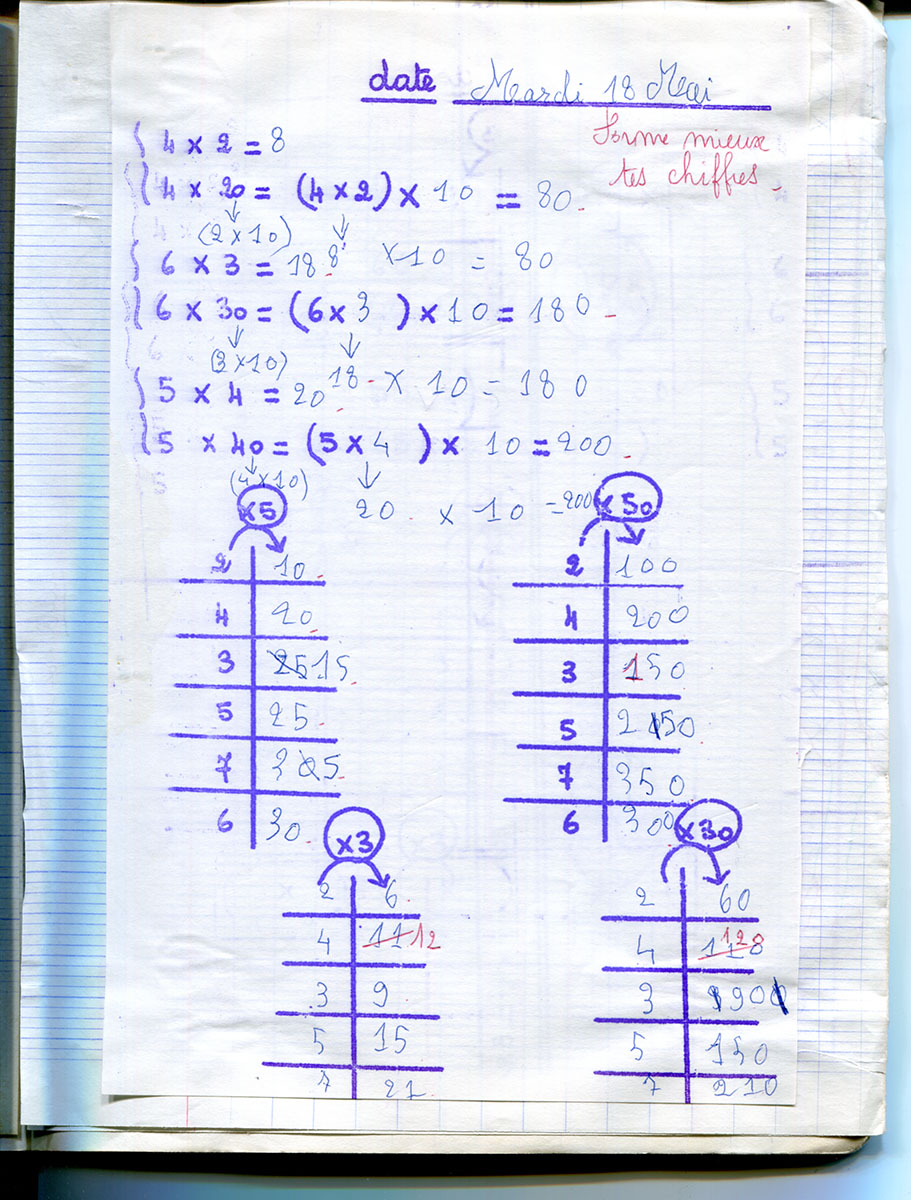 date Mardi 18 Mai
Forme mieux
tes chiffres.
4 × 2 = 8
4 × 20 = (4×2) × 10 = 80.
(2×10)
8 ×10 = 80
6 × 3 = 18.
6 × 30 = (6×3) × 10 = 180.
(3×10)
18. × 10 = 180
5 × 4 = 20.
5 × 40 = (5×4) × 10 = 200.
(4×10)
20. × 10 = 200
×5
2 10.
4 20
3 25 15.
5 25.
7 3 5.
6 30.
×50
2 100
4 200
3 150
5 2150
7 350
6 300
×3
2 6.
4 11 12
3 9
5 15
7 21
×30
2 60
4 118 12
3 90
5 150
7 210